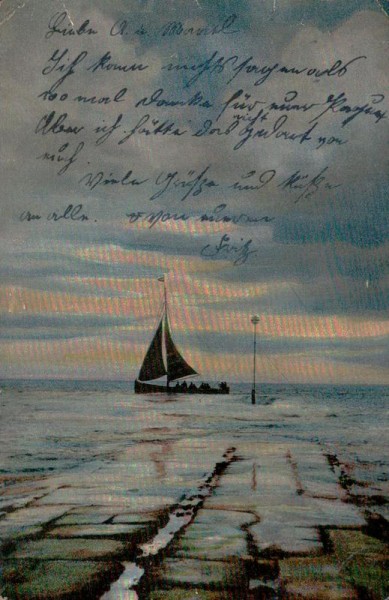 Liebe A. u.
Ich kann nichts sagen als
mal danke für euer
Aber ich hätte das nicht gedacht von
euch.
Viele Grüsse und Küsse
an alle. von eurem
Fritz